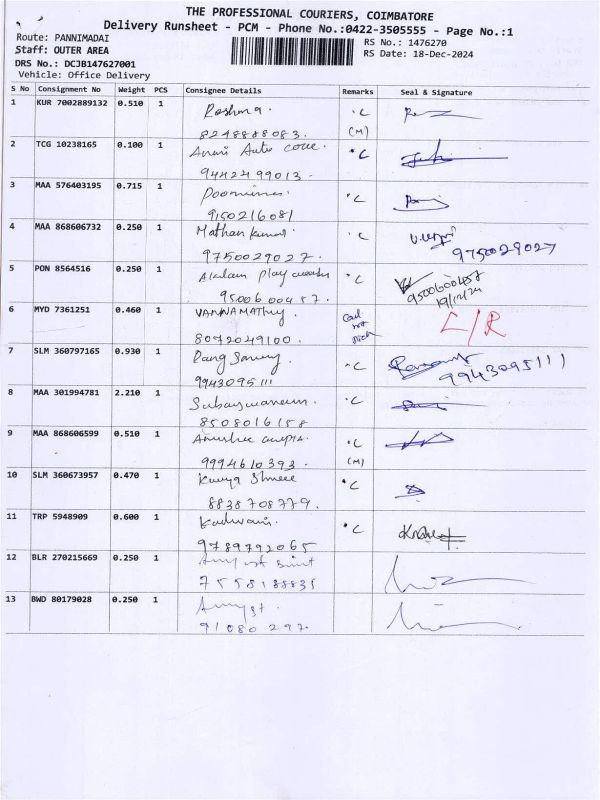 THE PROFESSIONAL COURIERS, COIMBATORE
Delivery Runsheet - PCM - Phone No.:0422-3505555 - Page No.:1
Route: PANNIMADAI
RS No.: 1476270
Staff: OUTER AREA
RS Date: 18-Dec-2024
DRS No.: DCJB147627001
Vehicle: Office Delivery
S No Consignment No Weight PCS Consignee Details Remarks Seal & Signature
1 KUR 7002889132 0.510 1 Roshma. ·C
8248888083. (M)
2 TCG 10238165 0.100 1 Auto ·C
9442499013.
3 MAA 576403195 0.715 1 Poornima. ·C
9150216081
4 MAA 868606732 0.250 1 Mathan kumar. ·C
9750029027. 9750029027
5 PON 8564516 0.250 1 ·C
9500600457. 9500600457
19/12/24
6 MYD 7361251 0.460 1 VANNAMATHY
8072049100. L/R
7 SLM 360797165 0.930 1 ·C
9943095111 9943095111
8 MAA 301994781 2.210 1 ·C
8508016158
9 MAA 868606599 0.510 1 ·C
9994610393. (M)
10 SLM 360673957 0.470 1 Kavya Shree ·C
8838708779.
11 TRP 5948909 0.600 1 ·C
9789792065
12 BLR 270215669 0.250 1
7558188835
13 BWD 80179028 0.250 1
91080297.